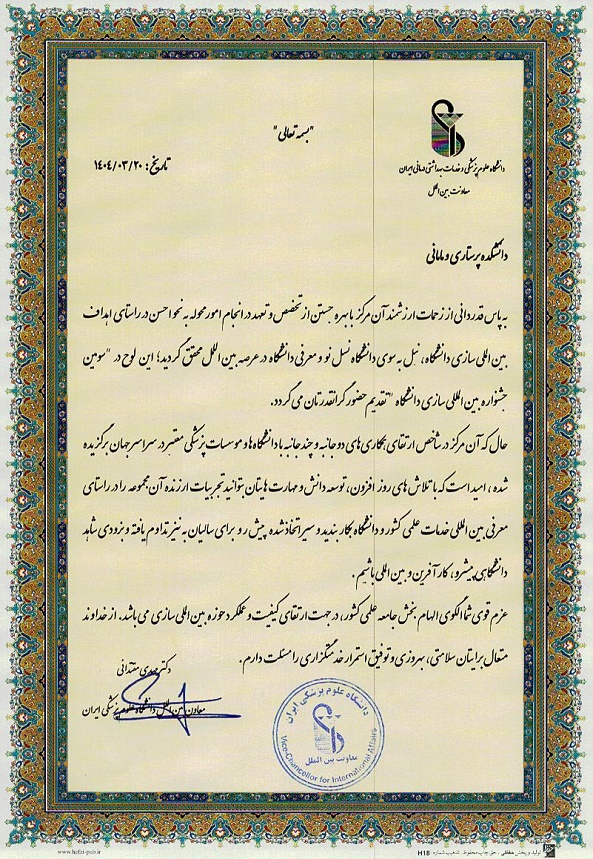 "بسمه تعالی"
دانشگاه علوم پزشکی و خدمات بهداشتی درمانی ایران
معاونت بین الملل
تاریخ: ۱۴۰۴/۰۳/۲۰
دانشکده پرستاری و مامائی
به پاس قدردانی از زحمات ارزشمند آن مرکز با بهره جستن از تخصص و تعهد در انجام امور محوله به نحو احسن در راستای اهداف
بین المللی سازی دانشگاه، نیل به سوی دانشگاه نسل نو و معرفی دانشگاه در عرصه بین الملل محقق گردید؛ این لوح در "سومین
جشنواره بین المللی سازی دانشگاه" تقدیم حضور گرانقدرتان می گردد.
حال که آن مرکز در شاخص ارتقای همکاری های دوجانبه و چندجانبه با دانشگاه ها و موسسات پزشکی معتبر در سراسر جهان برگزیده
شده، امید است که با تلاش های روز افزون، توسعه دانش و مهارت هایتان بتوانید تجربیات ارزنده آن مجموعه را در راستای
معرفی بین المللی خدمات علمی کشور و دانشگاه بکار بندید و سیر اتخاذ شده پیش رو برای سالیان به نیز تداوم یافته و بزودی شاهد
دانشگاهی پیشرو، کارآفرین و بین المللی باشیم.
عزم قوی شما الگوی الهام بخش جامعه علمی کشور، در جهت ارتقای کیفیت و عملکرد حوزه بین المللی سازی می باشد. از خداوند
متعال برایتان سلامتی، بهروزی و توفیق استمرار خدمتگزاری را مسئلت دارم.
دکتر مهدی
معاون بین الملل دانشگاه علوم پزشکی ایران
دانشگاه علوم پزشکی ایران
معاونت بین الملل
Vice-Chancellor for International Affairs
www.hefzi-pub.ir
تولید و پخش حفظی - حق چاپ محفوظ. تذهیب شماره: H18